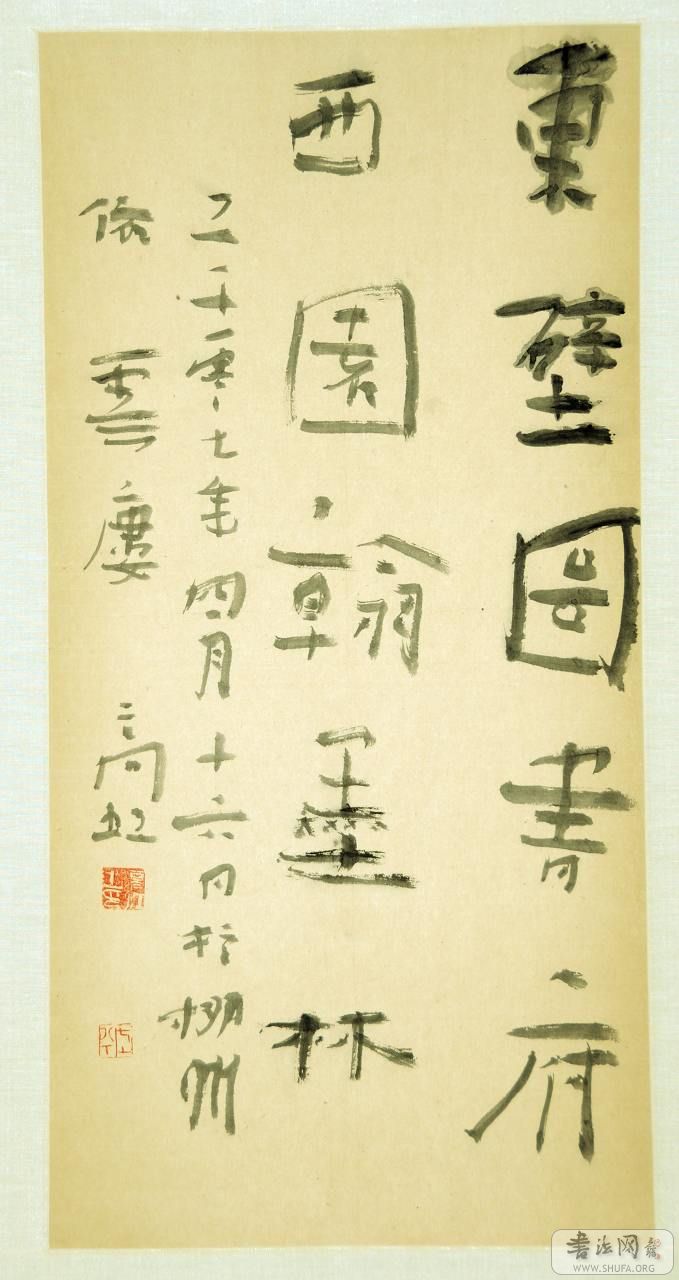 東壁圖書府
西園翰墨林
二千零七年四月十六日於柳州
依雲廔 高虹
書法网
WWW.SHUFA.ORG